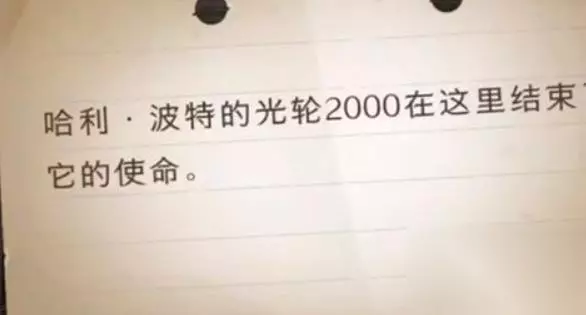 哈利·波特的光轮2000在这里结束
它的使命。